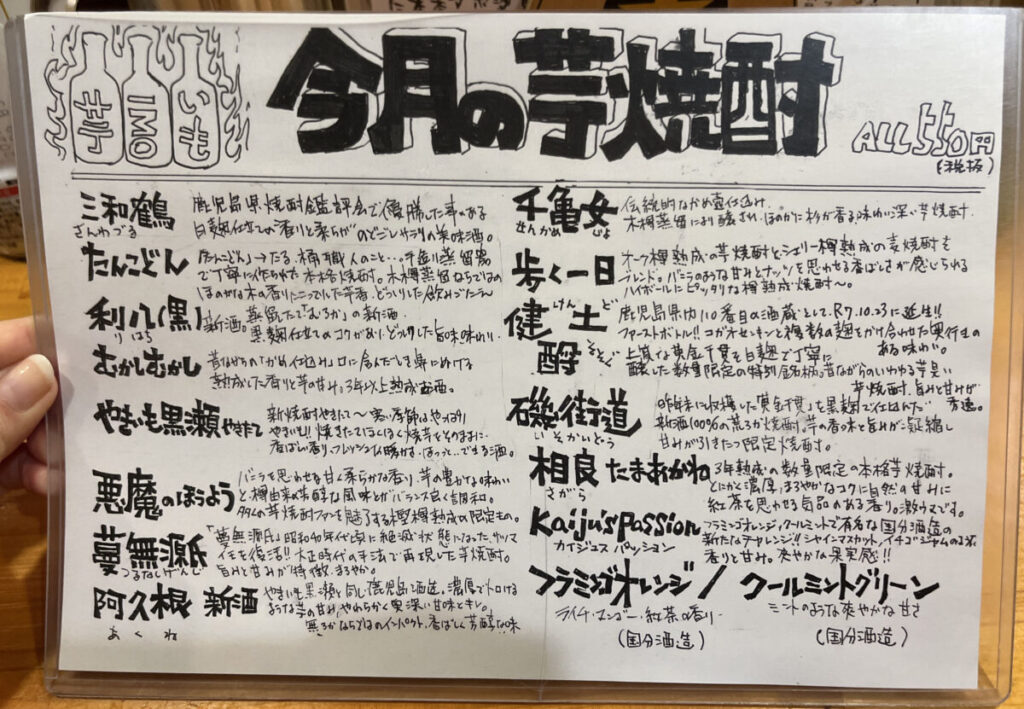 芋
IMO
いも
今月の芋焼酎
ALL 550円
(税抜)
三和鶴
さんわづる
鹿児島県焼酎鑑評会で優勝した事のある
白麹仕立ての香りと柔らかのどごしサラリの美味酒。
たんこどん
「たんこどん」→たる、桶職人のこと…。手造り蒸留器
で丁寧に作られた本格焼酎。木樽蒸留ならではの
ほのかな木の香りにこってりした芋香、どっしりした飲みごたえ
利八(黒)
りはち
新酒。蒸留したて「むろか」の新酒。
黒麹仕立てのコクがあり、どっしりした旨味味わい。
むかしむかし
昔ながらの「かめ仕込み」口に含んだしゅん間にぬける
熟成した香りと芋の甘み。3年以上熟成古酒。
やきいも黒瀬 やきたて
新焼酎やきたて〜寒い季節はやっぱり
やきいも!!焼きたてほくほく焼芋をそのままに。
香ばしい香り、フレッシュな暖かさ、ほっと…できる酒。
悪魔のほうよう
バニラを思わせる甘く柔らかな香り、芋の豊かな味わい
と樽由来の芳醇な風味とがバランス良く調和。
多くの芋焼酎ファンを魅了する樫樽熟成の限定もの。
蔓無源氏
つるなしげんじ
「蔓無源氏」昭和40年代頃に絶滅状態になったサツマ
イモを復活!!大正時代の手法で再現した芋焼酎。
旨みと甘みが特徴。まろやか。
阿久根 新酒
あくね
やきいも黒瀬と同じ鹿児島酒造。濃厚でトロける
ような芋の甘み、やわらかく奥深い甘味とキレ。
無ろかならではのインパクト、香ばしく芳醇な味
千亀女
せんかめじょ
伝統的なかめ壺仕込み。
木樽蒸留により醸され、ほのかに杉が香る味わい深い芋焼酎。
歩く一日
オーク樽熟成の芋焼酎とシェリー樽熟成の麦焼酎を
ブレンド。バニラのような甘みとナッツを思わせる香ばしさが感じられる
ハイボールにピッタリな樽熟成焼酎〜。
健土
けんど
鹿児島県内110番目の酒蔵として、R7.10.23に誕生!!
ファーストボトル!!コガネセンガンと複数の麹をかけ合わせた奥行の
ある味わい。
酹
そそぐ
上質な黄金千貫を白麹で丁寧に
醸した数量限定の特別銘柄。昔ながらのいわゆる芋臭い
芋焼酎、旨みと甘みが
秀逸。
磯街道
いそかいどう
昨年末に収穫した「黄金千貫」を黒麹で仕込んだ
新酒100%の荒ろか焼酎。芋の香味と旨みが凝縮し
甘みが引きたつ限定焼酎。
相良 たまあかね
さがら
3年熟成の数量限定の本格芋焼酎。
とにかく濃厚、まろやかなコクに自然の甘みに
紅茶を思わせる気品のある香り。激ウマです。
Kaiju's Passion
カイジュズ パッション
フラミンゴオレンジ、クールミントで有名な国分酒造の
新たなチャレンジ!!シャインマスカット、イチゴジャムのような
香りと甘み。爽やかな果実感!!
フラミンゴオレンジ / クールミントグリーン
ライチ・マンゴー・紅茶の香り
ミントのような爽やかな甘さ
(国分酒造)
(国分酒造)